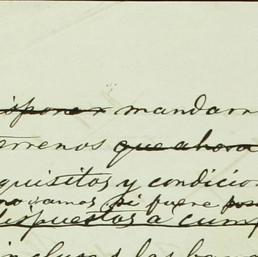 ispone x mandarn
errenos que ahora
quisitos y condicio
no vamos si fuere pos
dispuestos a cum
inclusos las ha